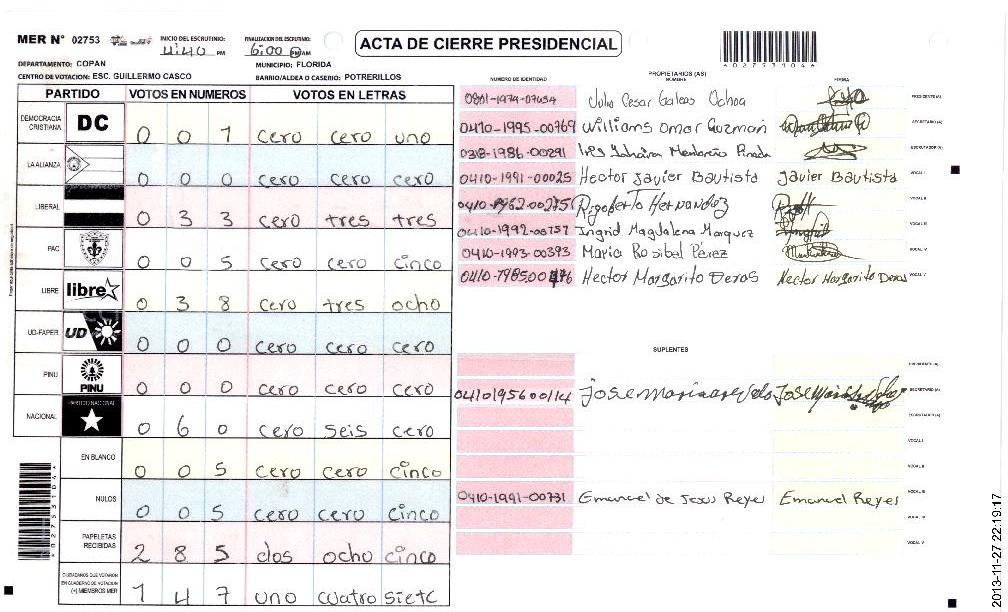 MER N° 02753
INICIO DEL ESCRUTINIO: 4:40 PM
FINALIZACION DEL ESCRUTINIO: 6:00 PM/AM
ACTA DE CIERRE PRESIDENCIAL
A02753104A
DEPARTAMENTO: COPAN
MUNICIPIO: FLORIDA
CENTRO DE VOTACION: ESC. GUILLERMO CASCO
BARRIO/ALDEA O CASERIO: POTRERILLOS
PARTIDO VOTOS EN NUMEROS VOTOS EN LETRAS
DEMOCRACIA CRISTIANA DC 0 0 1 cero cero uno
LA ALIANZA 0 0 0 cero cero cero
LIBERAL 0 3 3 cero tres tres
PAC 0 0 5 cero cero cinco
LIBRE libre 0 3 8 cero tres ocho
UD-FAPER UD 0 0 0 cero cero cero
PINU PINU 0 0 0 cero cero cero
NACIONAL PARTIDO NACIONAL 0 6 0 cero seis cero
EN BLANCO 0 0 5 cero cero cinco
NULOS 0 0 5 cero cero cinco
PAPELETAS RECIBIDAS 2 8 5 dos ocho cinco
CIUDADANOS QUE VOTARON EN CUADERNO DE VOTACION (+) MIEMBROS MER 1 4 7 uno cuatro siete
A02753104A
PROPIETARIOS (AS)
NUMERO DE IDENTIDAD NOMBRE FIRMA
Julio Cesar Galeas Ochoa PRESIDENTE (A)
0410-1995-00769 Williams Omar Guzman SECRETARIO (A)
0318-1986-00291 ESCRUTADOR (A)
0410-1991-00025 Hector Javier Bautista Javier Bautista VOCAL I
Rigoberto Hernandez VOCAL II
0410-1992-00757 Ingrid Magdalena Marquez VOCAL III
0410-1993-00393 Maria Rosibel Pérez VOCAL IV
Hector Margarito Deras Hector Margarito Deras VOCAL V
SUPLENTES
PRESIDENTE (A)
0410195600114 SECRETARIO (A)
ESCRUTADOR (A)
VOCAL I
VOCAL II
0410-1991-00731 Emanuel de Jesus Reyes Emanuel Reyes VOCAL III
VOCAL IV
VOCAL V
2013-11-27 22:19:17